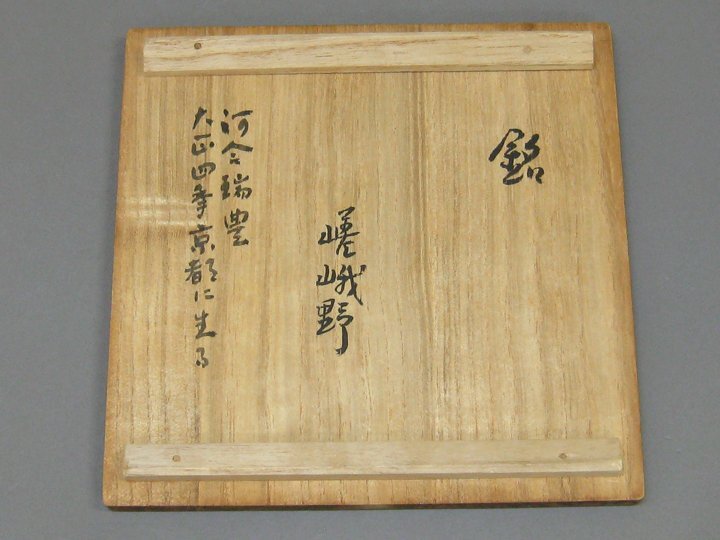 銘
嵯峨野
河合瑞豊
大正四年京都に生る